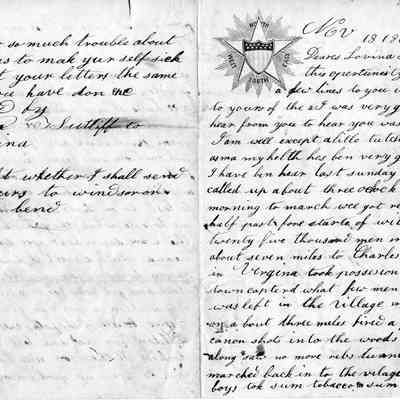 so much trouble about
to make yur self sick
your letters the same
have don
Sutliff co
whether I shall send
to windsor or
bend
NORTH
EAST
SOUTH
WEST
Nov 18 18
Deares Lovina
this opertunity
a few lines to you
to yours of the it was very
hear from you to hear you was
I am well except a litle tutch
asma my helth hes ben very
I have ben hear last sunday
called up about three oclock
morning to march wee got re
half past fore starte of wit
twenty five thousand men
about seven miles to Charles
in Vergina took possesion
town capterd what few men
was left in the village
on a bout three miles fired a
canon shot into the woods
along no more rebs
marched back in to the vilage
boys tok sum tobacco sum